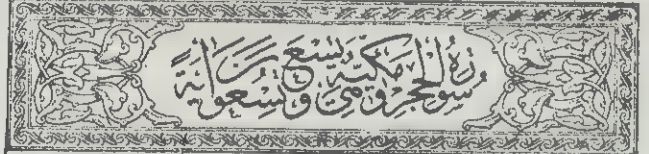 سورة الحجر مكية وهي تسع وتسعون آية